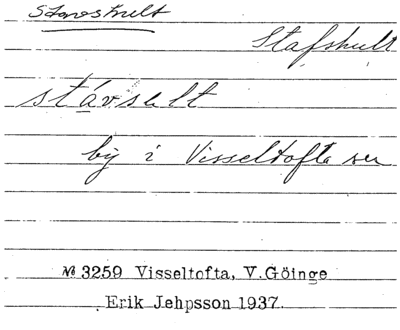 Stavshult
Stafshult
stávsult
by i Visseltofta sn
№ 3259 Visseltofta, V.Göinge
Erik Jehpsson 1937.